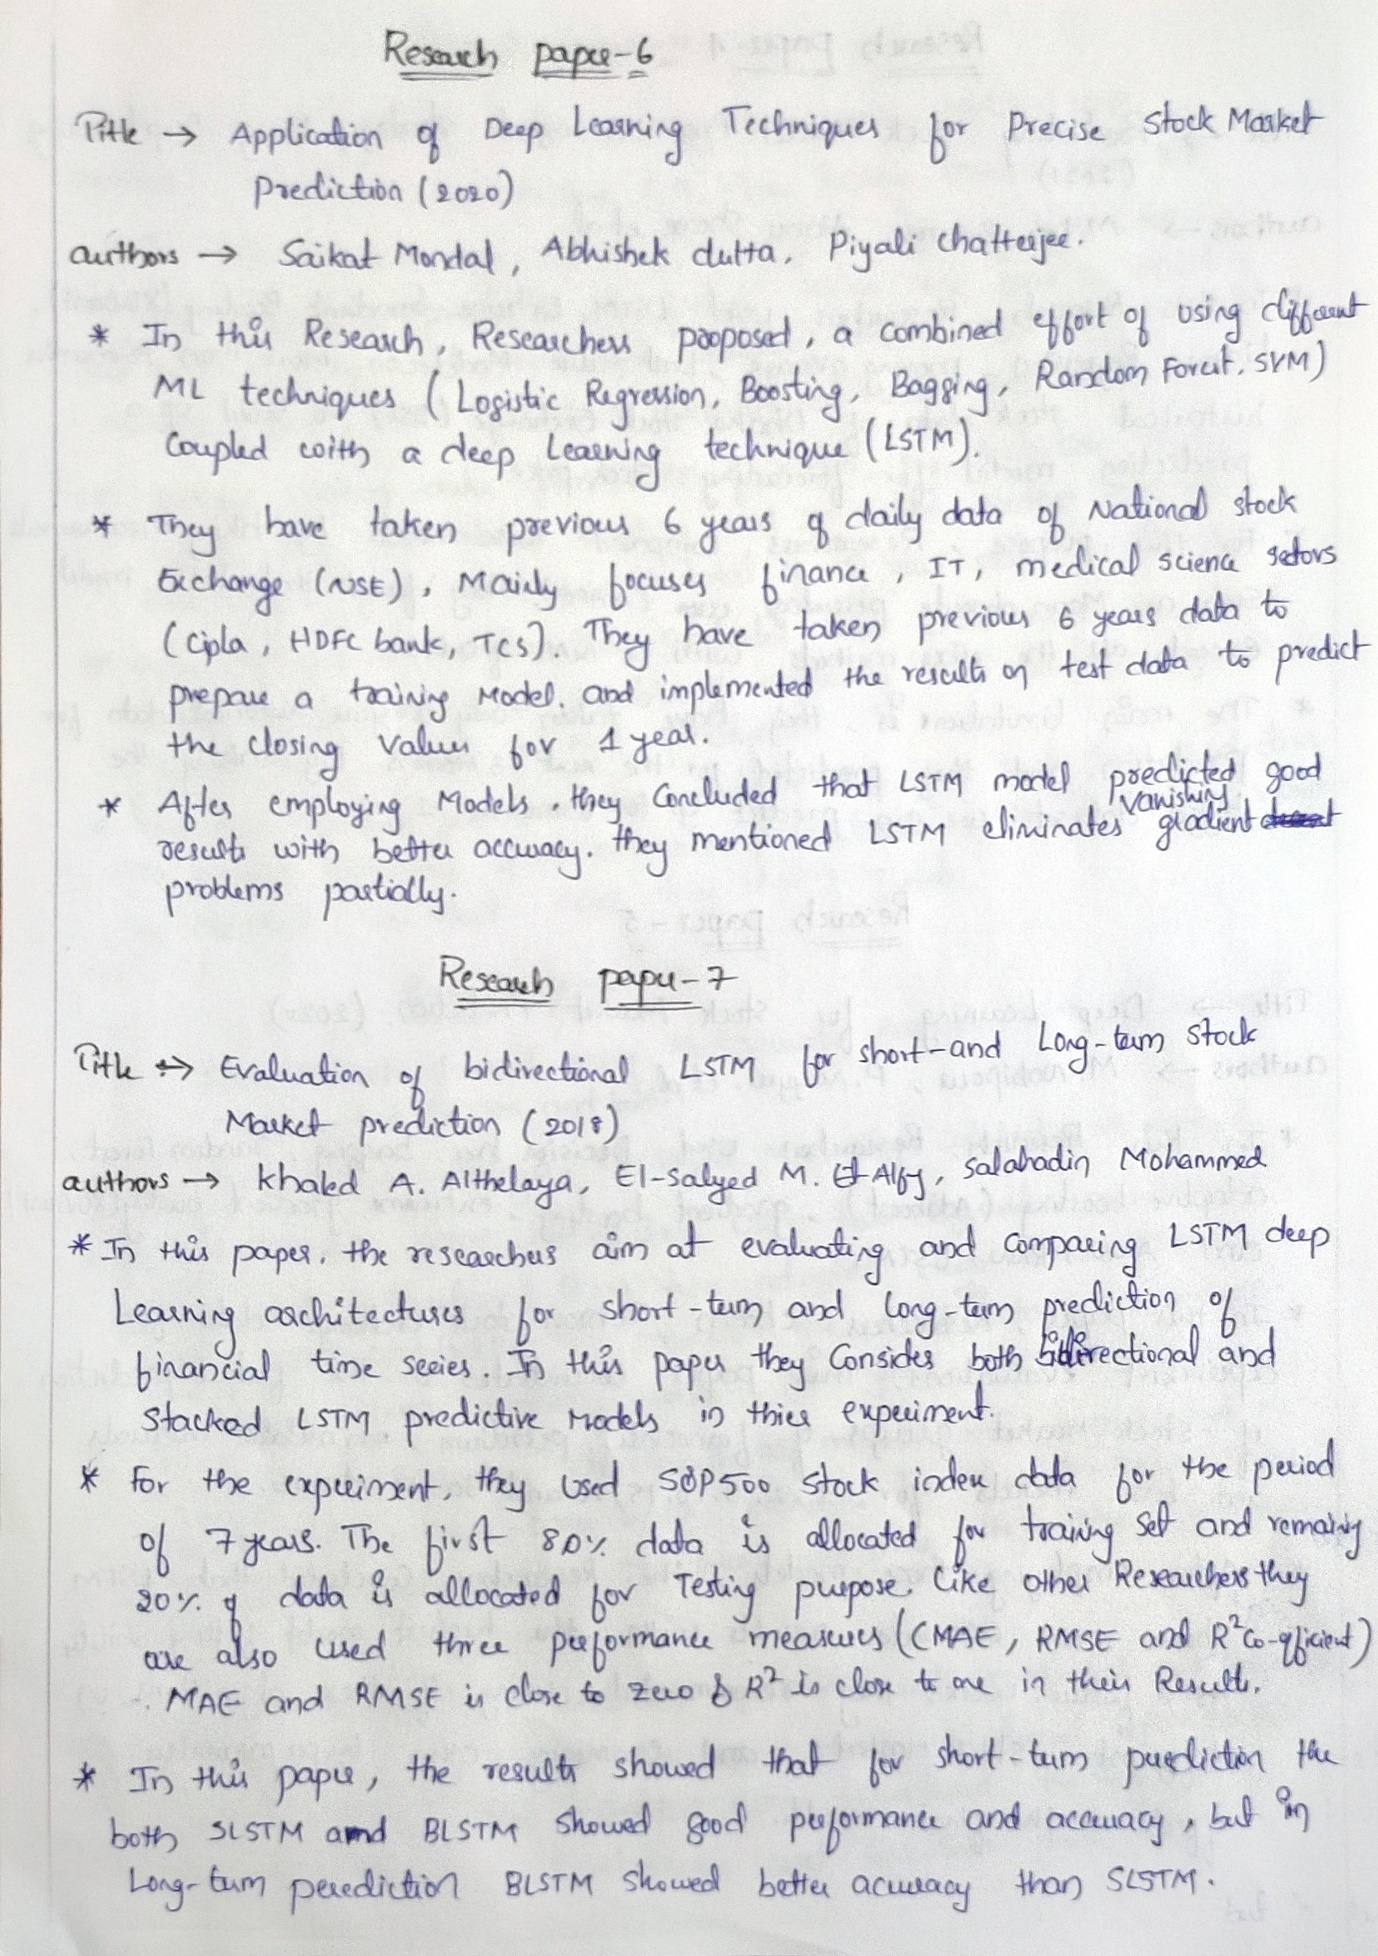 Research paper-6
Title → Application of Deep Learning Techniques for Precise Stock Market
Prediction (2020)
authors → Saikat Mondal, Abhishek dutta, Piyali chatterjee.
* In this Research, Researchers proposed, a combined effort of using different
ML techniques (Logistic Regression, Boosting, Bagging, Random Forest, SVM)
Coupled with a deep Learning technique (LSTM).
* They have taken previous 6 years of daily data of National stock
Exchange (NSE), Mainly focuses finance, IT, medical science sectors
(Cipla, HDFC bank, TCS). They have taken previous 6 years data to
prepare a training Model. and implemented the results on test data to predict
the closing Values for 1 year.
* After employing Models, they Concluded that LSTM model predicted good
results with better accuracy. they mentioned LSTM eliminates vanishing gradient
problems partially.
Research paper-7
Title → Evaluation of bidirectional LSTM for short-and Long-term stock
Market prediction (2018)
authors → khaled A. Althelaya, El-Salyed M. El-Alfy, Salahadin Mohammed
* In this paper, the researchers aim at evaluating and Comparing LSTM deep
Learning architectures for short-term and long-term prediction of
financial time series. In this paper they Consider both bidirectional and
Stacked LSTM predictive Models in thier experiment.
* For the experiment, they used S&P500 stock index data for the period
of 7 years. The first 80% data is allocated for training set and remaining
20% of data is allocated for Testing purpose. Like other Researchers they
are also used three performance measures (CMAE, RMSE and R² Co-efficient)
. MAE and RMSE is close to zero & R² is close to one in their Results.
* In this paper, the results showed that for short-term prediction the
both SLSTM and BLSTM showed good performance and accuracy, but in
Long-term perediction BLSTM showed better accuracy than SLSTM.